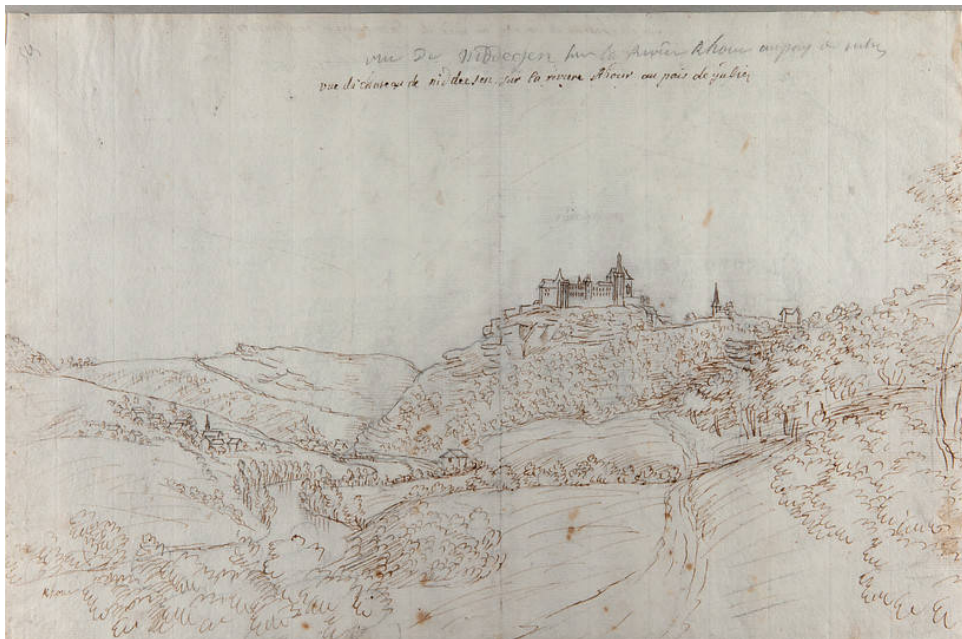 vue De Niddegen sur la Riviere Rhour au pays de
vue du chateau de niddesen sur la riviere Rhour au pais de julien
Rhour